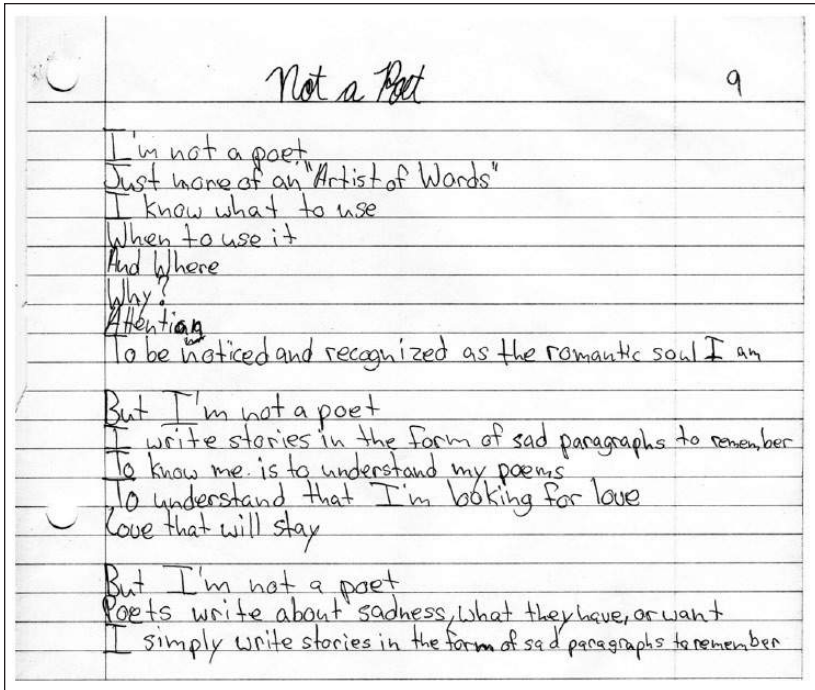 Not a Poet 9
I'm not a poet
Just more of an "Artist of Words"
I know what to use
When to use it
And Where
Why?
Attention
To be noticed and recognized as the romantic soul I am
But I'm not a poet
I write stories in the form of sad paragraphs to remember
To know me is to understand my poems
To understand that I'm looking for love
Love that will stay
But I'm not a poet
Poets write about sadness, what they have, or want
I simply write stories in the form of sad paragraphs to remember